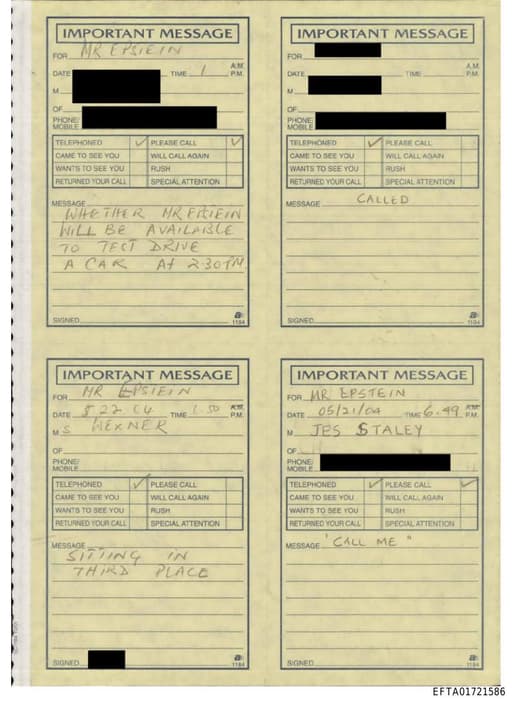 IMPORTANT MESSAGE
FOR MR EPSTEIN
DATE TIME 1 A.M. P.M.
M
OF
PHONE/ MOBILE
TELEPHONED ✓ PLEASE CALL ✓
CAME TO SEE YOU WILL CALL AGAIN
WANTS TO SEE YOU RUSH
RETURNED YOUR CALL SPECIAL ATTENTION
MESSAGE
WHETHER MR EPSTEIN
WILL BE AVAILABLE
TO TEST DRIVE
A CAR At 230PM.
SIGNED
1184
IMPORTANT MESSAGE
FOR
DATE TIME A.M. P.M.
M
OF
PHONE/ MOBILE
TELEPHONED ✓ PLEASE CALL
CAME TO SEE YOU WILL CALL AGAIN
WANTS TO SEE YOU RUSH
RETURNED YOUR CALL SPECIAL ATTENTION
MESSAGE CALLED
SIGNED
1184
IMPORTANT MESSAGE
FOR MR EPSTEIN
DATE 22 04 TIME 50 A.M. P.M.
M S WEXNER
OF
PHONE/ MOBILE
TELEPHONED ✓ PLEASE CALL
CAME TO SEE YOU WILL CALL AGAIN
WANTS TO SEE YOU RUSH
RETURNED YOUR CALL SPECIAL ATTENTION
MESSAGE
SITTING IN
THIRD PLACE
SIGNED
1184
IMPORTANT MESSAGE
FOR MR EPSTEIN
DATE 05/21/04 TIME 6.49 A.M. P.M.
M JES STALEY
OF
PHONE/ MOBILE
TELEPHONED ✓ PLEASE CALL ✓
CAME TO SEE YOU WILL CALL AGAIN
WANTS TO SEE YOU RUSH
RETURNED YOUR CALL SPECIAL ATTENTION
MESSAGE "CALL ME"
SIGNED
1184
EFTA01721586